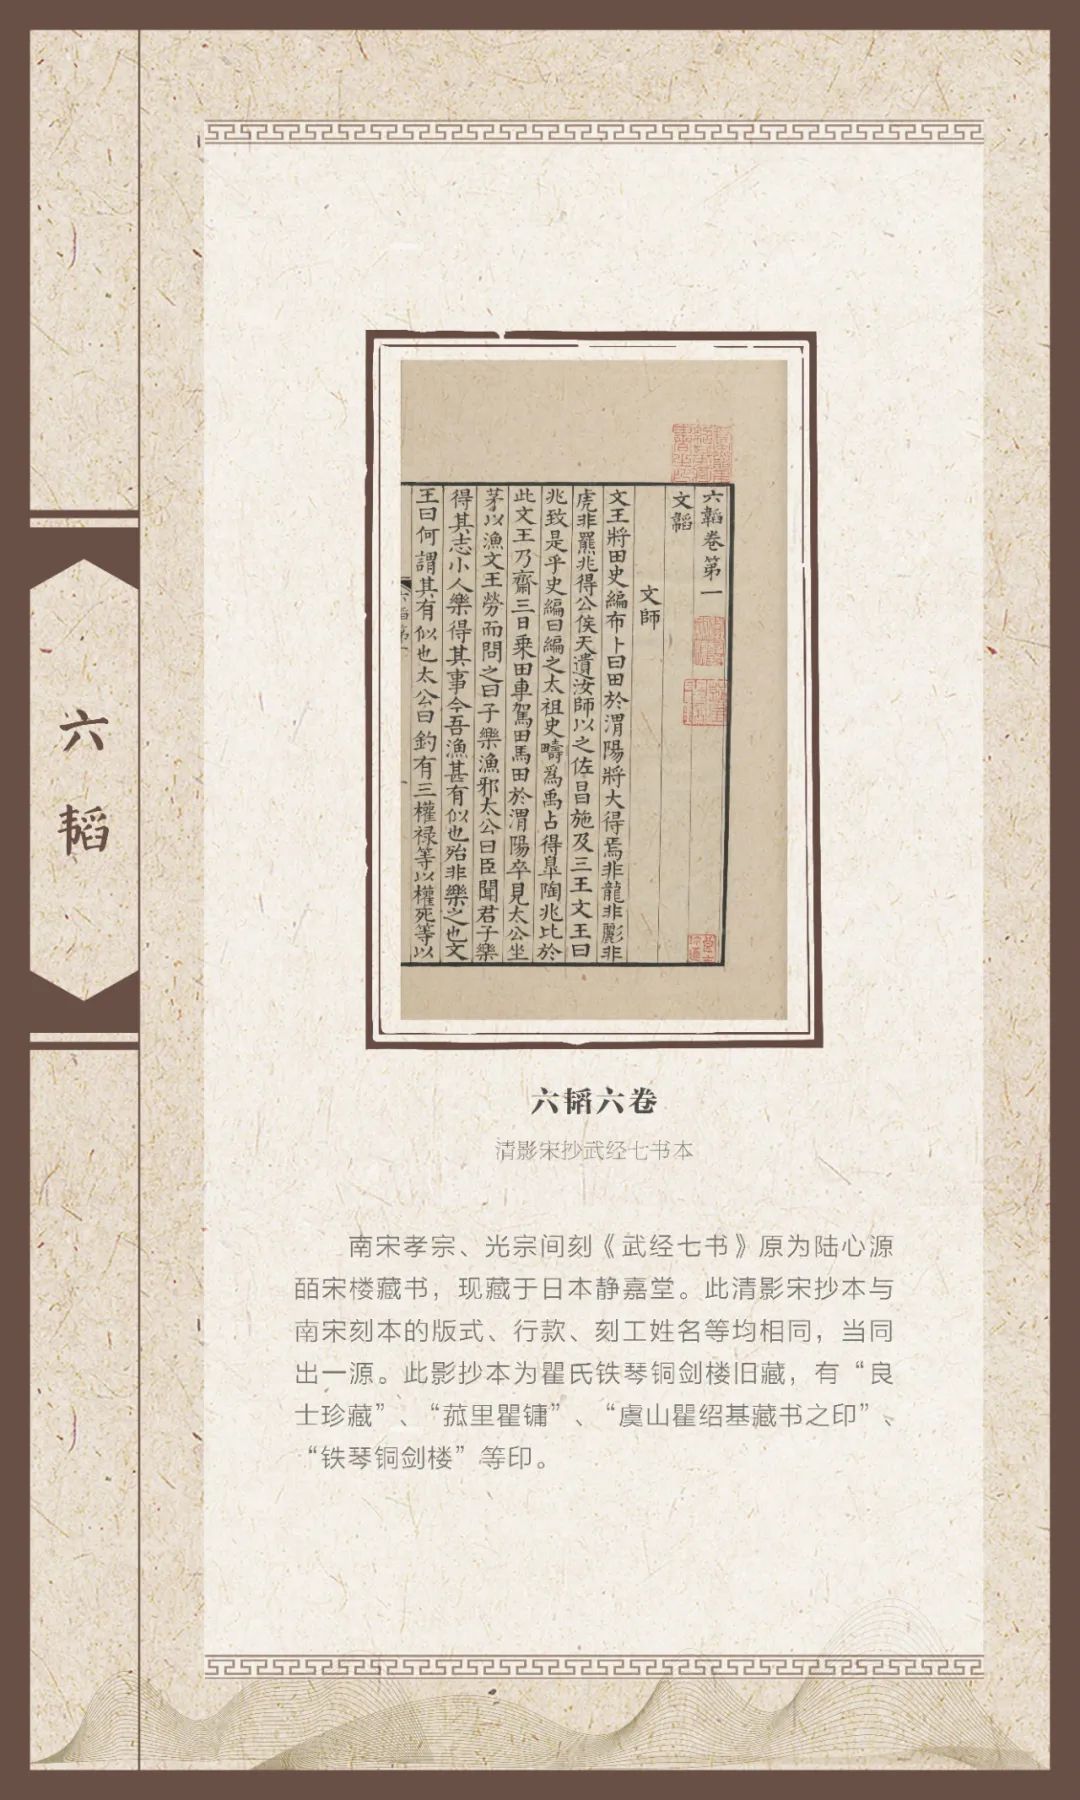 六韬
六韜卷第一
文韜
文師
文王將田史編布卜曰田於渭陽將大得焉非龍非彲非
虎非羆兆得公侯天遺汝師以之佐昌施及三王文王曰
兆致是乎史編曰編之太祖史疇爲禹占得臯陶兆比於
此文王乃齋三日乗田車駕田馬田於渭陽卒見太公坐
茅以漁文王勞而問之曰子樂漁邪太公曰臣聞君子樂
得其志小人樂得其事今吾漁甚有似也殆非樂之也文
王曰何謂其有似也太公曰釣有三權禄等以權死等以
六韬六卷
清影宋抄武经七书本
南宋孝宗、光宗间刻《武经七书》原为陆心源
皕宋楼藏书，现藏于日本静嘉堂。此清影宋抄本与
南宋刻本的版式、行款、刻工姓名等均相同，当同
出一源。此影抄本为瞿氏铁琴铜剑楼旧藏，有“良
士珍藏”、“菰里瞿镛”、“虞山瞿绍基藏书之印”、
“铁琴铜剑楼”等印。